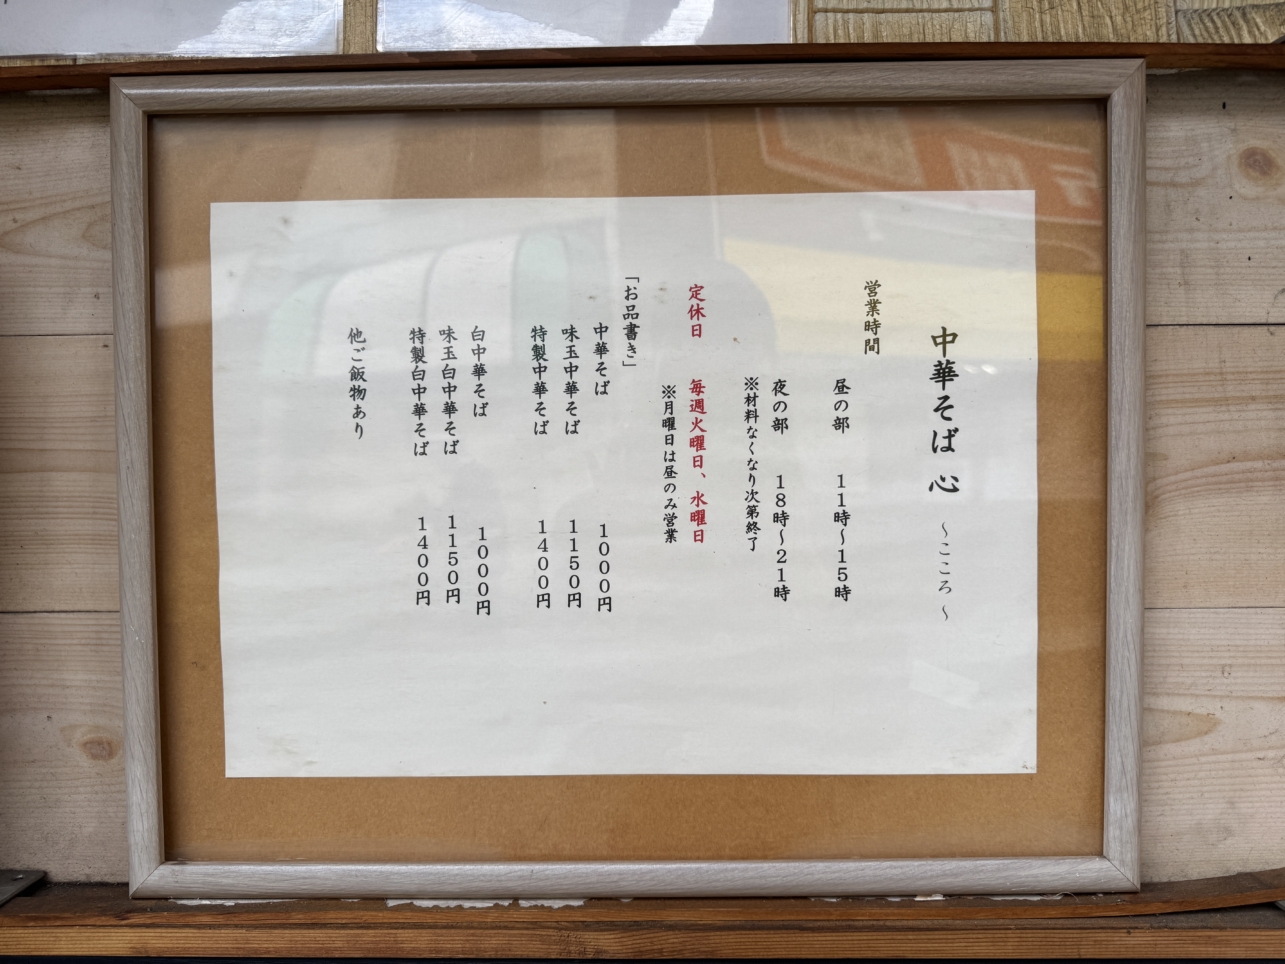 中華そば 心 ～こころ～
営業時間
昼の部 11時～15時
夜の部 18時～21時
※材料なくなり次第終了
定休日 毎週火曜日、水曜日
※月曜日は昼のみ営業
「お品書き」
中華そば 1000円
味玉中華そば 1150円
特製中華そば 1400円
白中華そば 1000円
味玉白中華そば 1150円
特製白中華そば 1400円
他ご飯物あり